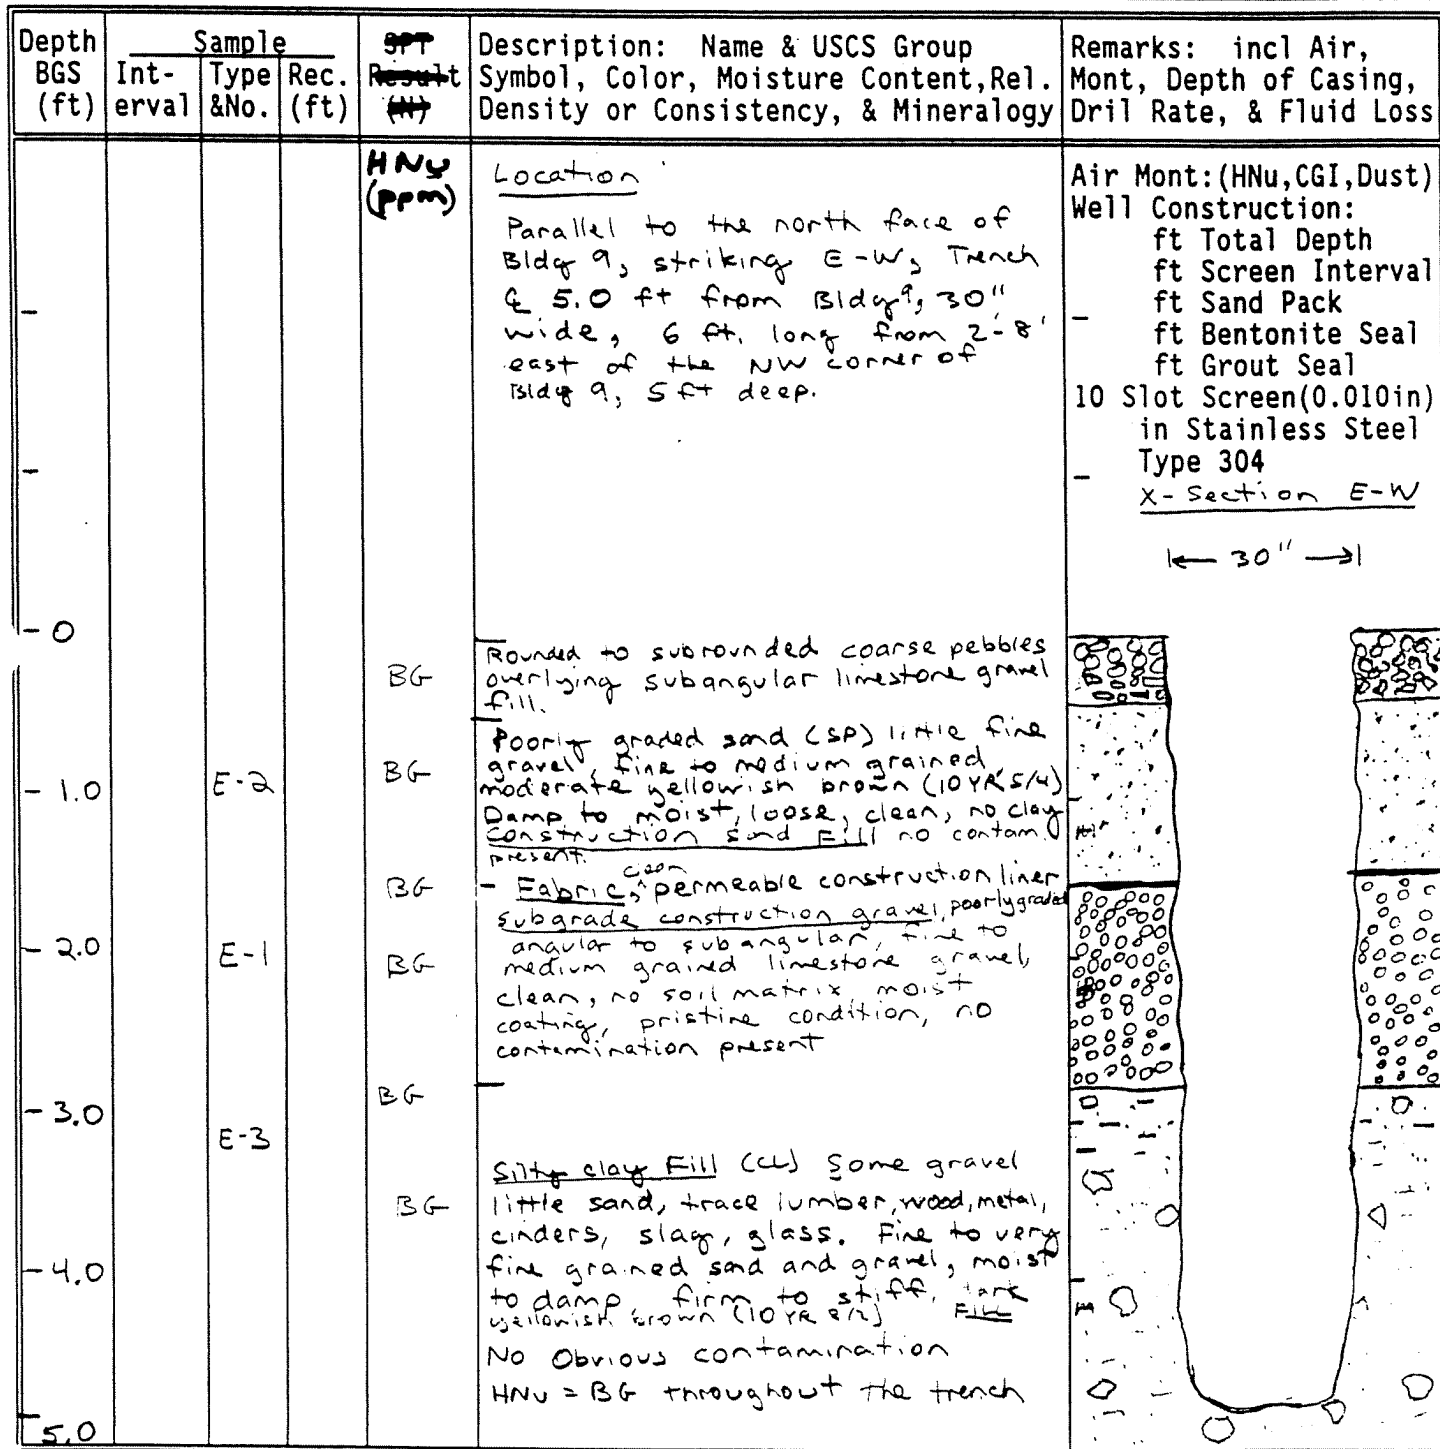 Depth
BGS
(ft)
Sample
Int-
erval
Type
&No.
Rec.
(ft)
SPT
Result
(N)
Description: Name & USCS Group
Symbol, Color, Moisture Content,Rel.
Density or Consistency, & Mineralogy
Remarks: incl Air,
Mont, Depth of Casing,
Dril Rate, & Fluid Loss
HNu
(ppm)
Location
Parallel to the north face of
Bldg 9, striking E-W, Trench
℄ 5.0 ft from Bldg 9, 30"
wide, 6 ft. long from 2-8'
east of the NW corner of
Bldg 9, 5 ft deep.
Air Mont:(HNu,CGI,Dust)
Well Construction:
ft Total Depth
ft Screen Interval
ft Sand Pack
ft Bentonite Seal
ft Grout Seal
10 Slot Screen(0.010in)
in Stainless Steel
Type 304
X-Section E-W
30"
0
BG
Rounded to subrounded coarse pebbles
overlying subangular limestone gravel
fill.
1.0
E-2
BG
Poorly graded sand (SP) little fine
gravel, fine to medium grained,
moderate yellowish brown (10YR 5/4)
Damp to moist, loose, clean, no clay
Construction sand Fill no contam.
present.
BG
- Fabric, clean permeable construction liner
subgrade construction gravel, poorly graded
2.0
E-1
BG
angular to subangular, fine to
medium grained limestone gravel,
clean, no soil matrix, moist
coating, pristine condition, no
contamination present
BG
3.0
E-3
BG
Silty clay Fill (CL) Some gravel
little sand, trace lumber, wood, metal,
cinders, slag, glass. Fine to very
fine grained sand and gravel, moist
4.0
to damp, firm to stiff, dark
yellowish brown (10YR Fill
No Obvious contamination
HNu = BG throughout the trench
5.0